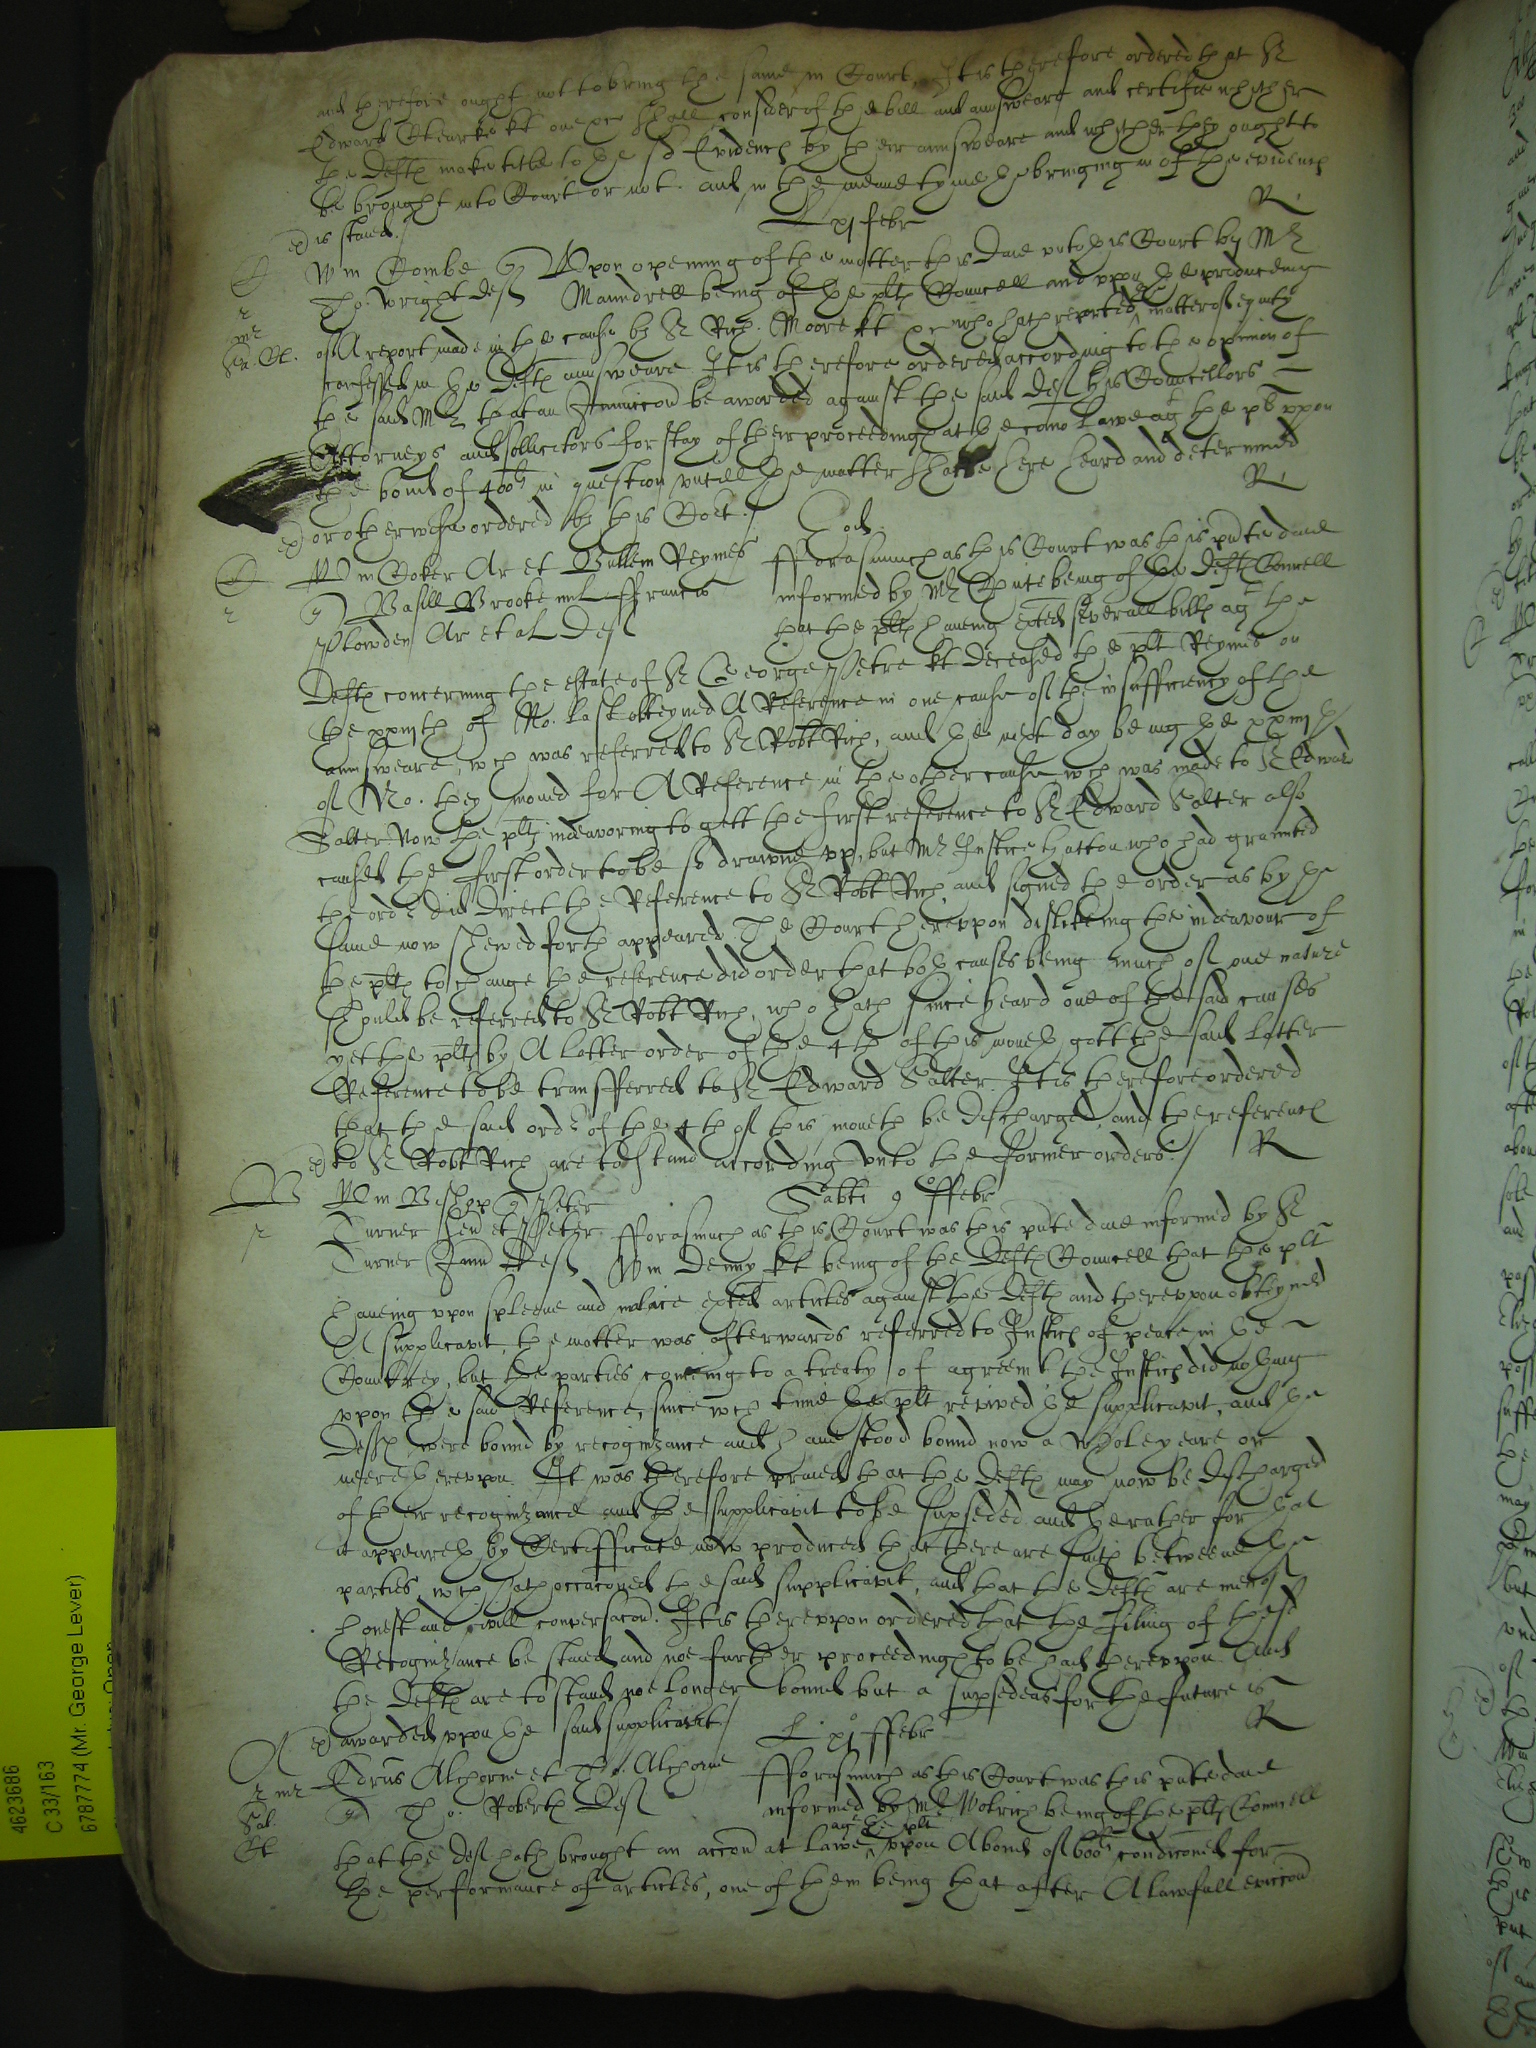 and therefore ought not to bring the same in Court, It is therefore ordered that Sr
Edward Clearke kt one &c shall consider of the bill and answeare and certifie whither
the Defts make title to the sd Evidence by their answeare and whither they ought to
be brought into Court or not. and in the meane tyme the bringing in of the evidence
is staied./ R
L xj febr
Wm Combe q Upon opening of the matter this daie unto this Court by Mr
Tho: Wright deft Maundrell being of the plts Councell and uppon the produceing
of A report made in the cause by Sr Rich. Moore kt &c who hath reported matter of equity
confessed in the Defts answeare It is therefore ordered according to the opinion of
the said Mr that an Iniunccon be awarded against the said Deft his Councellors
Attorneys and sollicitors for stay of their proceedings at the comon Lawe agt the plt uppon
the bond of 400li in question untill the matter shalbe here heard and determined
or otherwise ordered by this Cort./ R
Eod.
Wm Coker Ar et Bullein Reymes fforasmuch as this Court was this pnte daie
q Basill Brooke mil ffrancis informed by Mr being of the Defts Councell
Plowden Ar et al Deft that the plts haveing exhted severall bills agt the
Defts concerning the estate of Sr George Petre kt deceased the plt Reymes on
the xxijth of No. last obteyned A Reference in one cause of the insufficiency of the
answeare, wch was referred to Sr Robt Rich, and the next day being the xxiijth
of No. they moved for A Reference in the other cause wch was made to Sr Edward
Salter Now the plts indeavoring to gett the first reference to Sr Edward Salter also
caused the first order to be so drawne up, but Mr Justice Hatton who had graunted
the ordr did direct the Reference to Sr Robt Rich and signed the order as by the
same now shewed forth appeared The Court thereuppon disliking the indeavour of
the plts to change the reference did order that both causes being much of one nature
should be referred to Sr Robt Rich, who hath since heard one of the said causes
yet the plts by A latter order of the 4th of this moneth gott the said latter
Reference to be transferred to Sr Edward Salter It is therefore ordered
that the said ordr of the 4th of this moneth be discharged, and the references
to Sr Robt Rich are to stand according unto the former orders./ R
Wm Bishop q Peter Sabti 9o ffebr
Turner sen et Peter fforasmuch as this Court was this pnte daie informed by Sr
Turner Jun Deft Wm Denny kt being of the Defts Councell that the plt
haveing upon spleene and malice exhted articles against the Defts and thereuppon obteyned
A supplicavit, the matter was afterwards referred to Justices of peace in the
Countrey, but the parties coming to a treaty of agreemt the Justices did nothing
uppon the said Reference, since wch time the plt revived the supplicavit, and the
Defts were bound by recognizance and have stood bound now a whole yeare or
neere thereuppon. It was therefore praied that the Defts may now be discharged
of their recognizance and the supplicavit to be supseded and the rather for that
it appeareth by Certifficate now produced that there are suits betweene the
parties, wch hath occaconed the said supplicavit, and that the Defts are men of
honest and civill conversacon. It is thereuppon ordered that the filing of these
Recognizance be staied and noe further proceedings to be had thereuppon And
the Defts are to stand noe longer bound but a supsedeas for the future is
awarded uppon the said supplicavit./ R
L xjo ffebr
Edrus Alchorne et Tho. Alchorne fforasmuch as this Court was this pnte daie
q Tho: Roberts Deft informed by Mr Wolrich being of the plts Councell
that the deft hath brought an accon at lawe agt the plt uppon A bond of 600li condiconed for
the performance of articles, one of them being that after A lawfull eviccon
4623686
C 33/163
6787774 (Mr. George Lever)